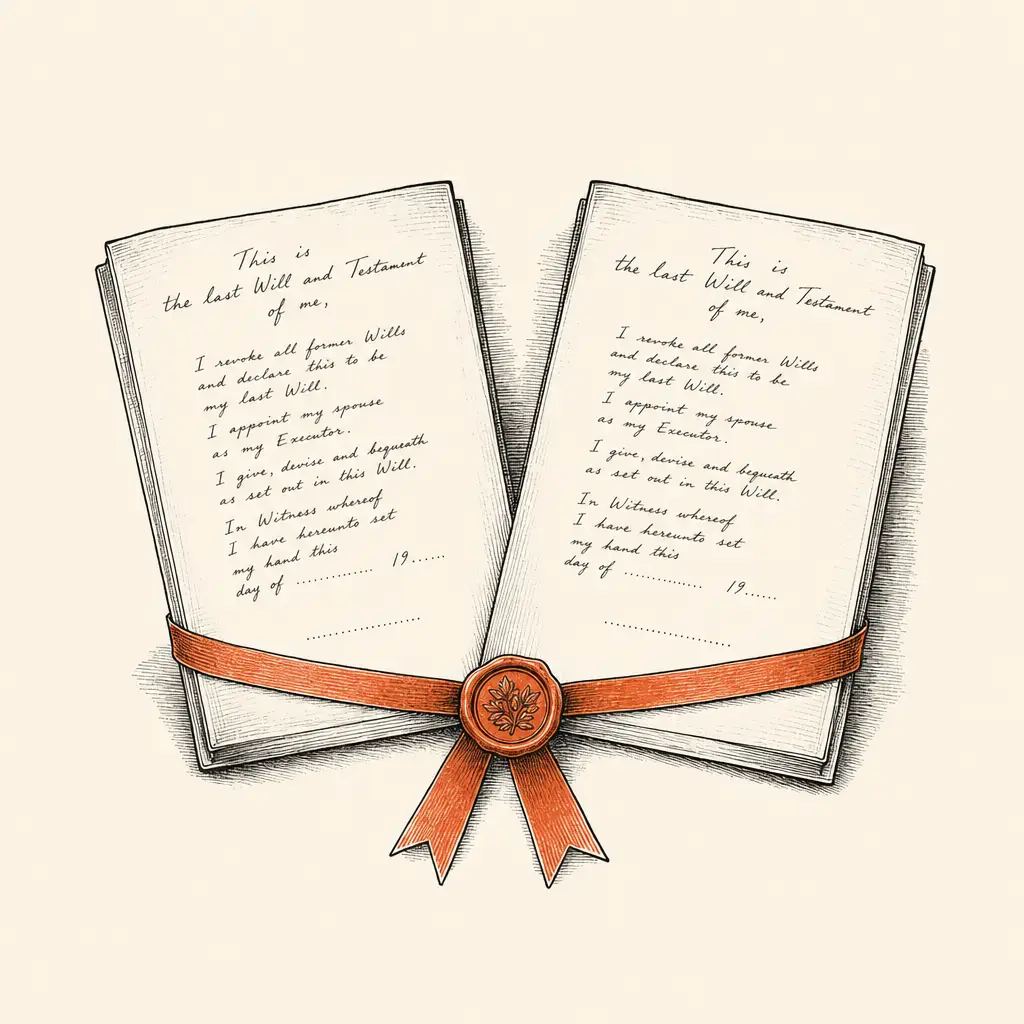 This is
the last Will and Testament
of me,
I revoke all former Wills
and declare this to be
my last Will.
I appoint my spouse
as my Executor.
I give, devise and bequeath
as set out in this Will.
In Witness whereof
I have hereunto set
my hand this
day of .............. 19......
....................
This is
the last Will and Testament
of me,
I revoke all former Wills
and declare this to be
my last Will.
I appoint my spouse
as my Executor.
I give, devise and bequeath
as set out in this Will.
In Witness whereof
I have hereunto set
my hand this
day of .............. 19......
....................